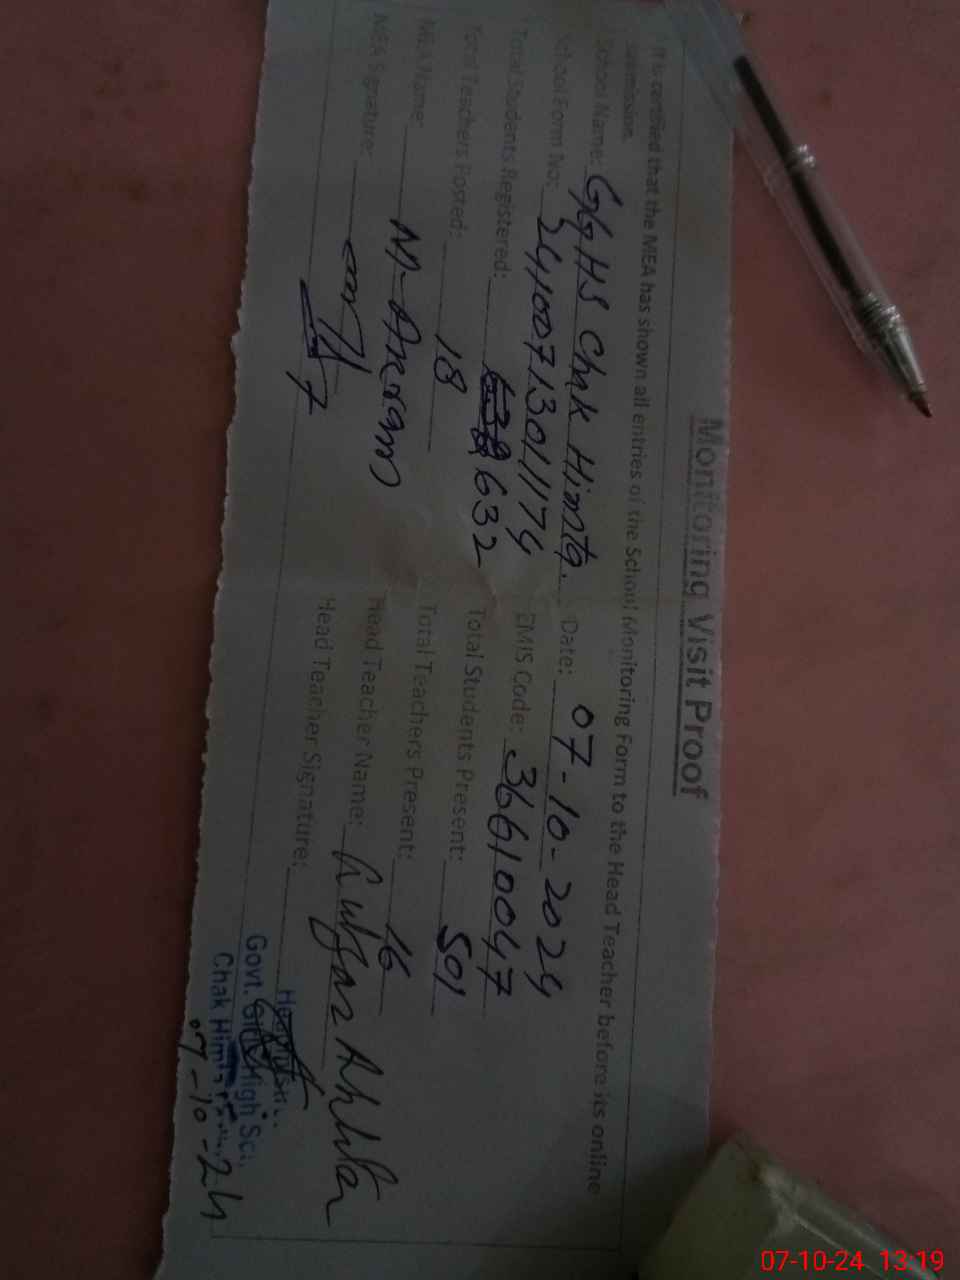 Monitoring Visit Proof
It is certified that the MEA has shown all entries of the School Monitoring Form to the Head Teacher before its online
submission.
School Name: GGHS Chak Himta. Date: 07-10-2024
School Form No: EMIS Code: 36610047
Total Students Registered: 632 Total Students Present: 501
Total Teachers Posted: 18 Total Teachers Present: 16
MEA Name: M-Anoram Head Teacher Name: Akhtar
MEA Signature: Head Teacher Signature:
Govt. Girls High
Chak
07-10-24
07-10-24 13:19